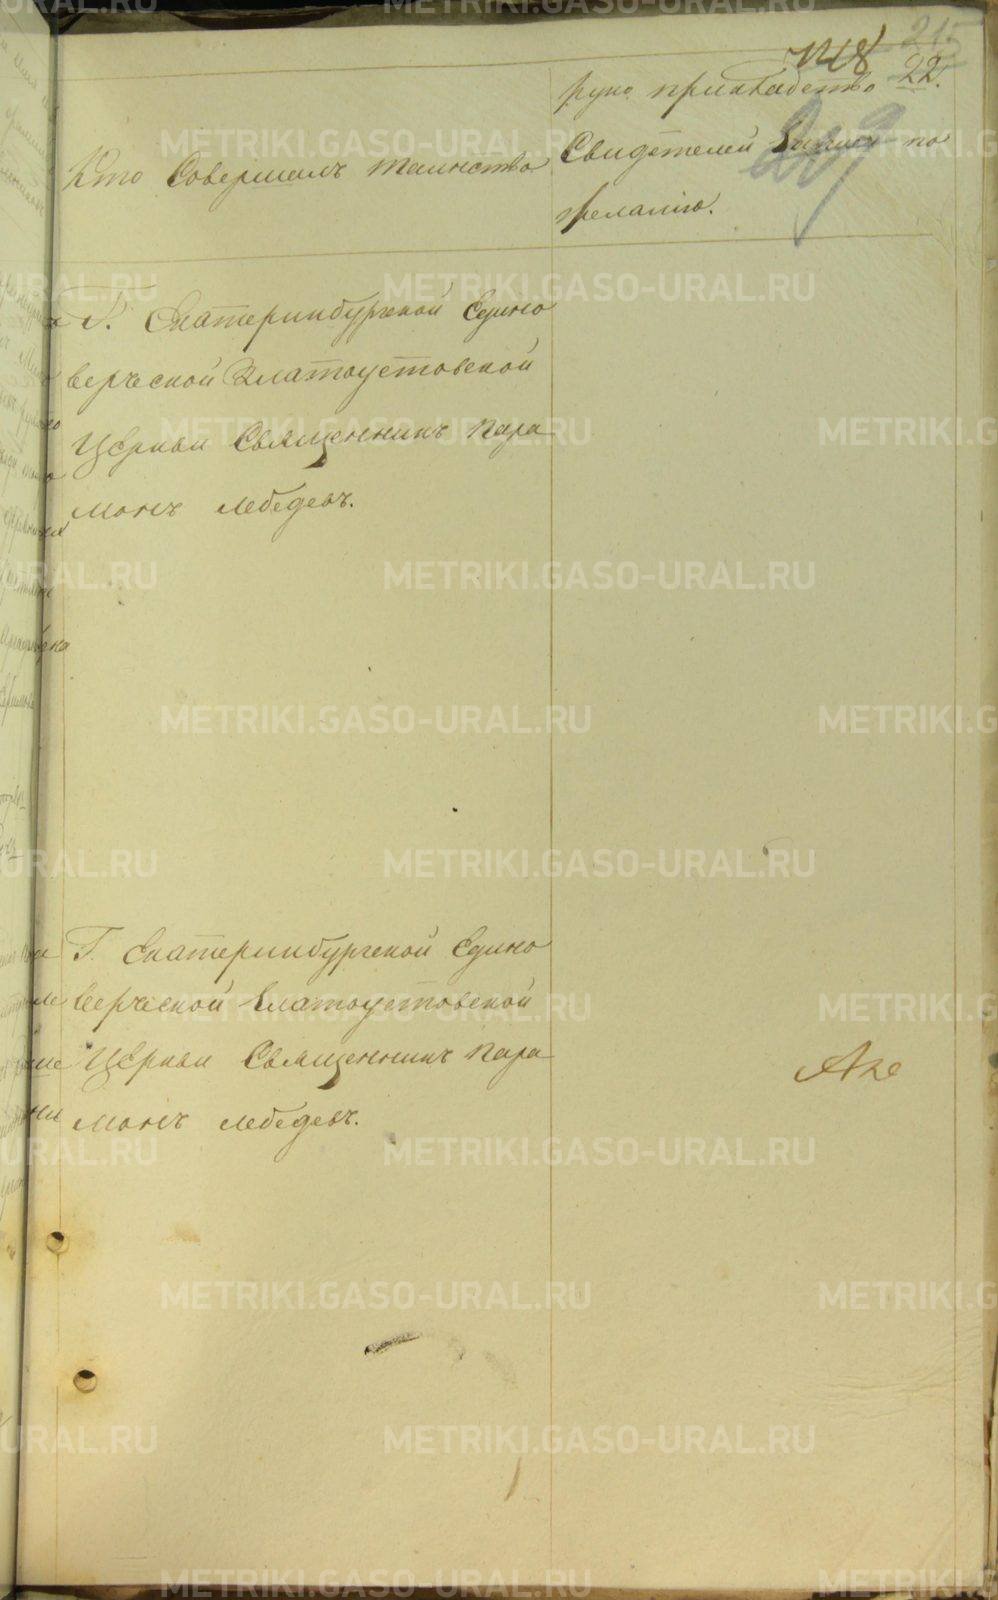 215
22.
209
Кто Совершалъ таинство
руко прикладство
Свидѣтелей записи по
желанію.
Г. Екатеринбургской Едино
верческой Златоустовской
Церкви Священникъ Пара
монъ Лебедевъ.
Г. Екатеринбургской Едино
верческой Златоустовской
Церкви Священникъ Пара
монъ Лебедевъ.
METRIKI.GASO-URAL.RU